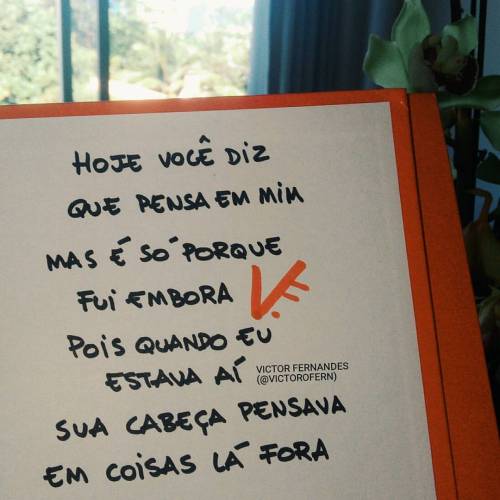 HOJE VOCÊ DIZ
QUE PENSA EM MIM
MAS É SÓ PORQUE
FUI EMBORA
VF.
POIS QUANDO EU
ESTAVA AÍ
VICTOR FERNANDES
(@VICTOROFERN)
SUA CABEÇA PENSAVA
EM COISAS LÁ FORA